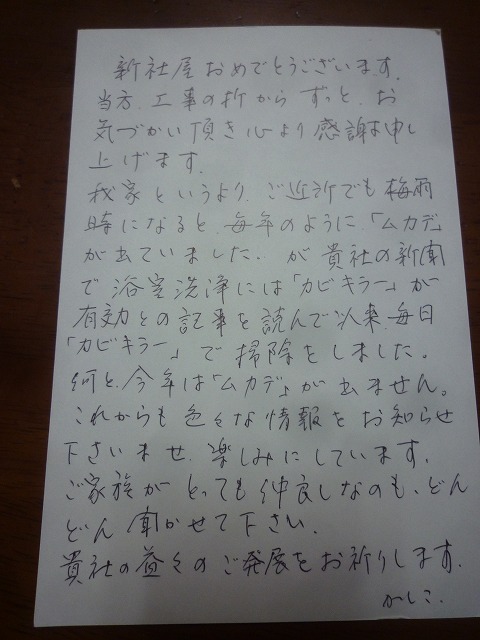 新社屋おめでとうございます.
当方、工事の折から ずっと、お
気づかい頂き心より感謝申し
上げます.
我家というより、ご近所でも梅雨
時になると、毎年のように、「ムカデ」
が出ていました. が 貴社の新聞
で 浴室洗浄には「カビキラー」が
有効との記事を読んで以来、毎日
「カビキラー」で掃除をしました。
何と、今年は「ムカデ」が出ません。
これからも色々な情報をお知らせ
下さいませ. 楽しみにしています.
ご家族が とっても仲良しなのも、どん
どん 聞かせて下さい.
貴社の益々のご発展をお祈りします.
かしこ.